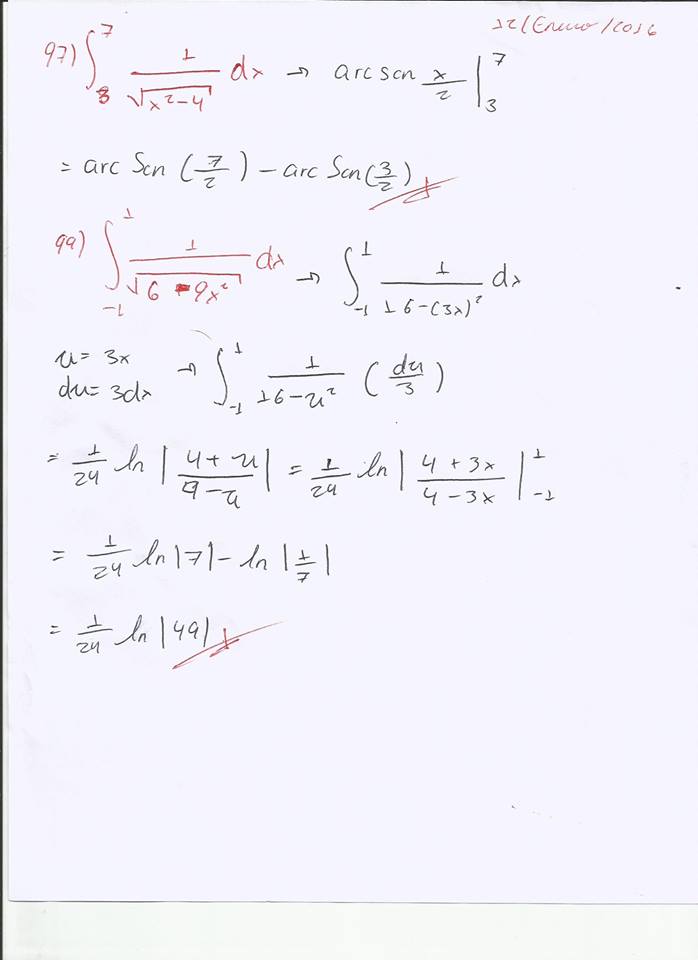 12/Enero/2016
97) ∫_3^7 1/√(x²-4) dx → arc sen x/2 |_3^7
= arc Sen (7/2) - arc Sen (3/2)
99) ∫_-1^1 1/√(6-9x²) dx → ∫_-1^1 1/(16-(3x)²) dx
u= 3x → ∫_-1^1 1/(16-u²) (du/3)
du= 3dx
= 1/24 ln |(4+u)/(4-u)| = 1/24 ln |(4+3x)/(4-3x)|_-1^1
= 1/24 ln |7| - ln |1/7|
= 1/24 ln |49|